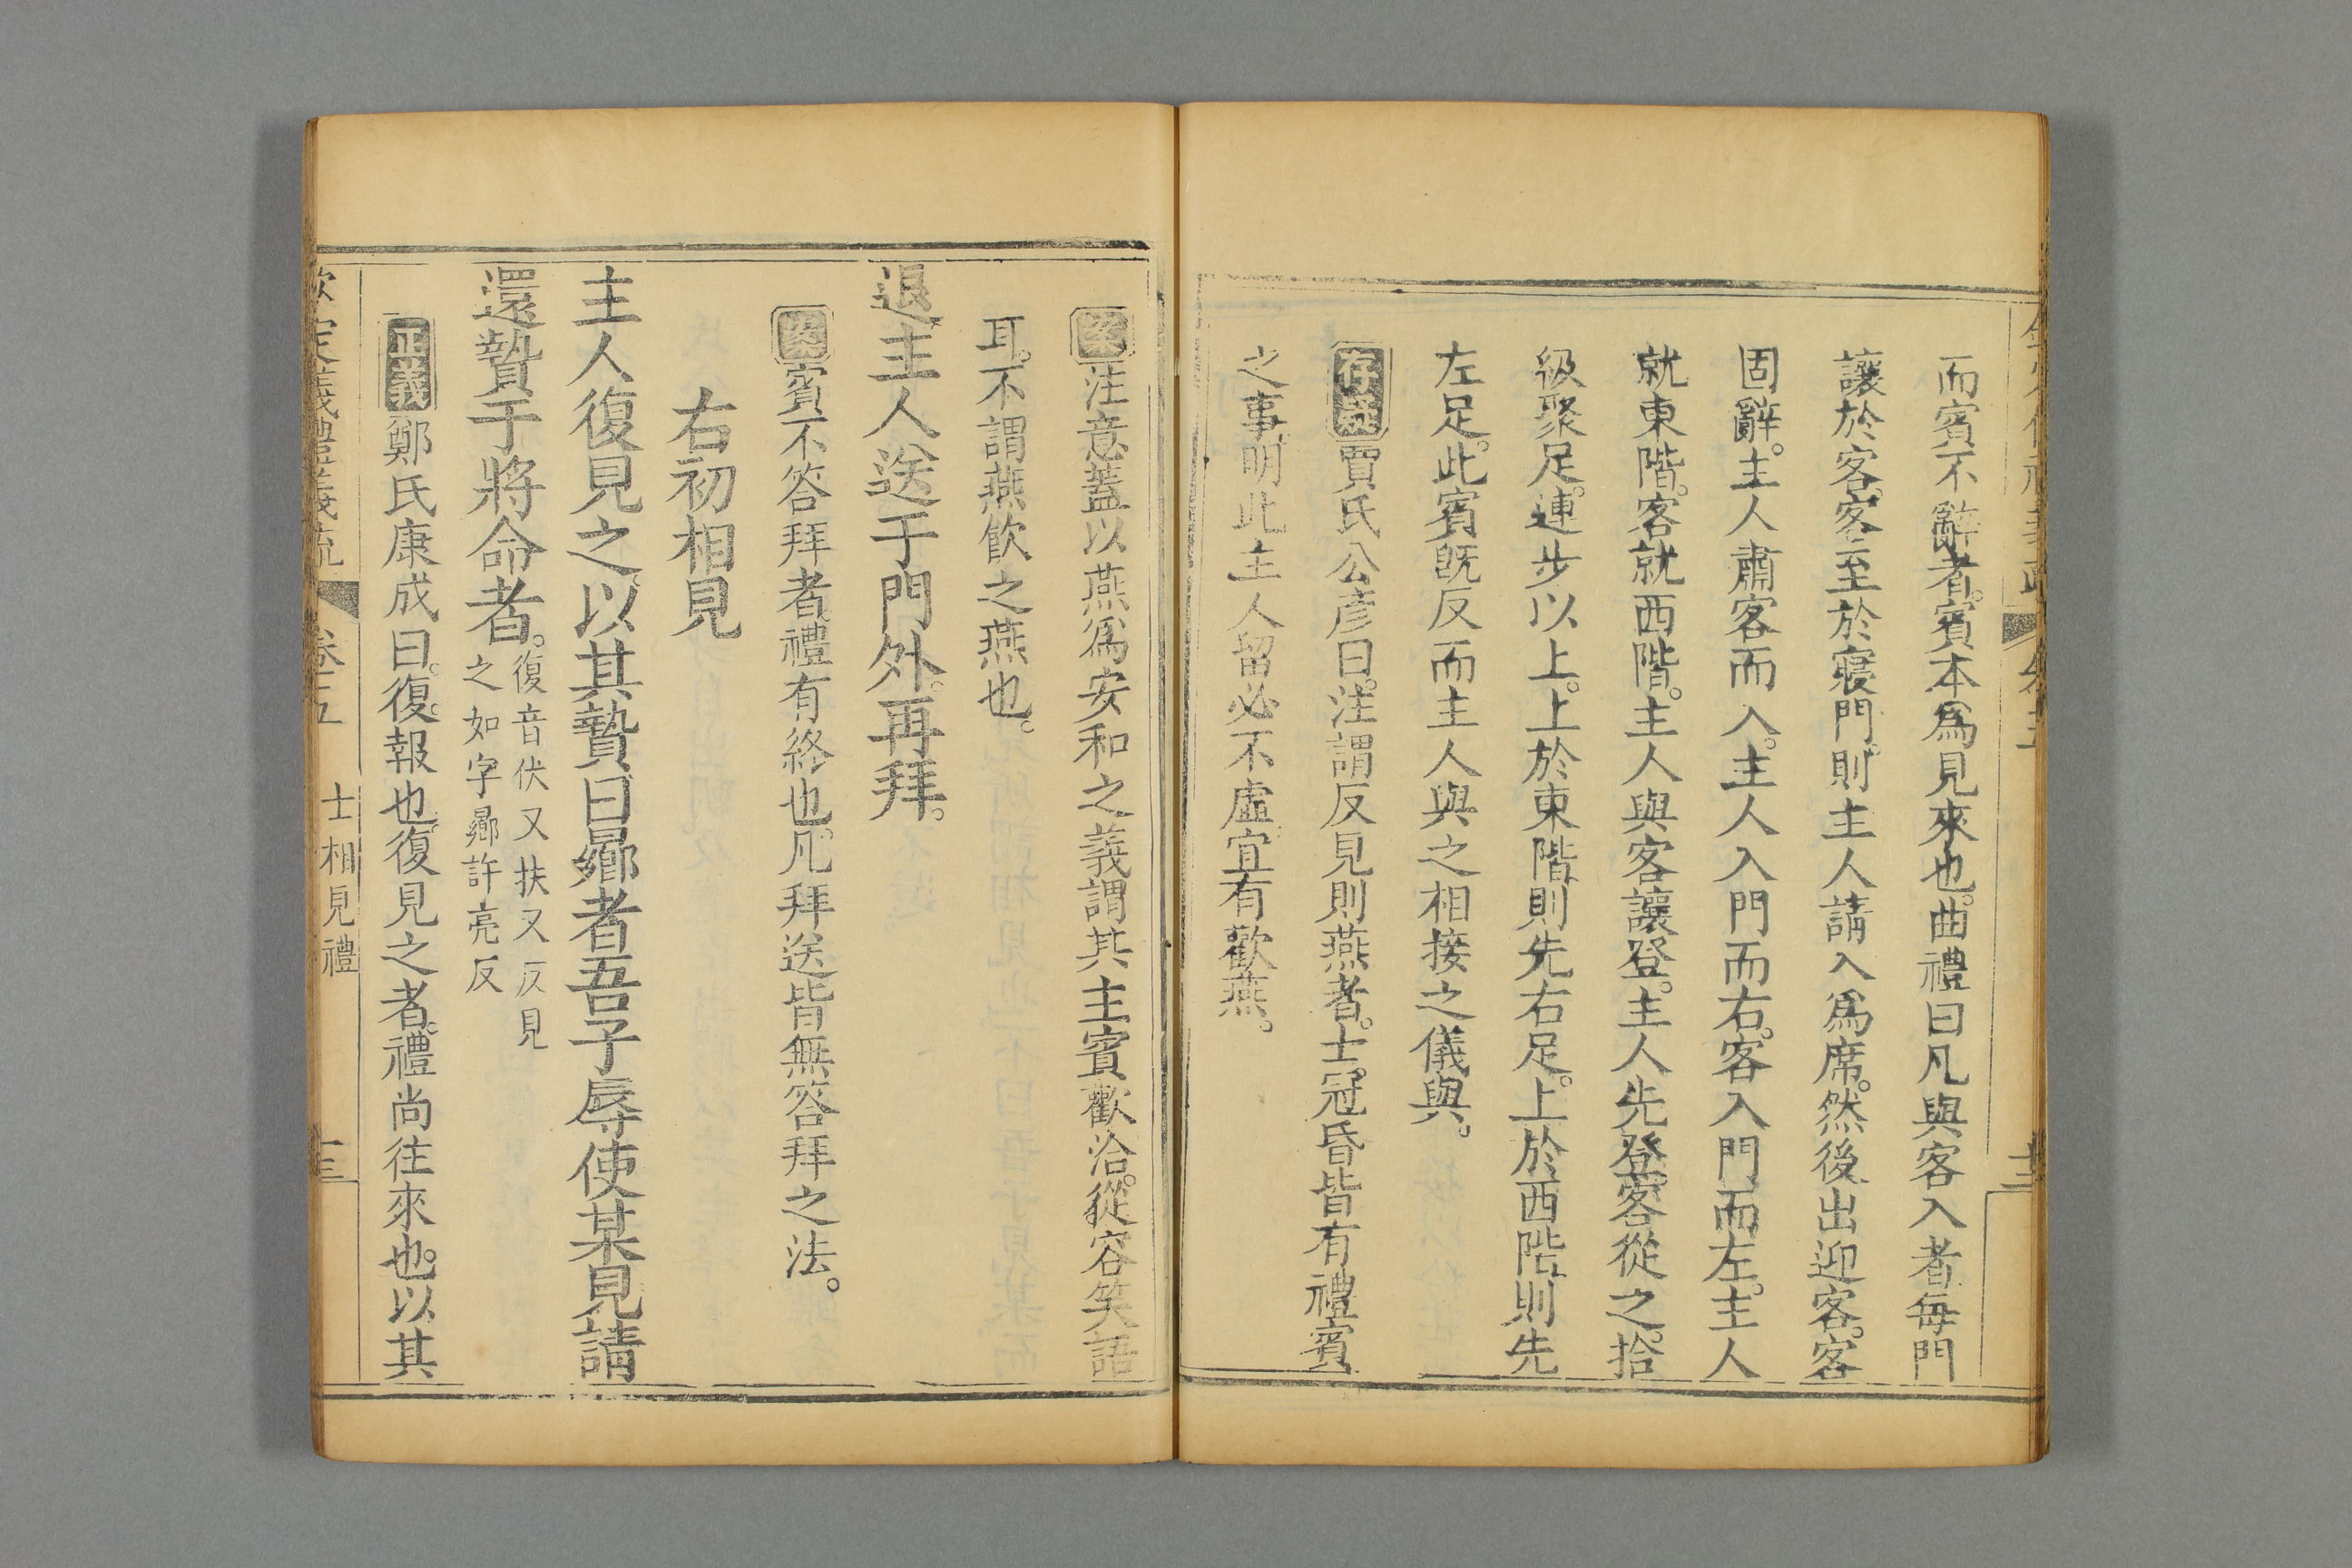 而賓不辭者。賓本爲見來也。曲禮曰凡與客入者每門
讓於客。客至於寢門。則主人請入爲席。然後出迎客。客
固辭。主人肅客而入。主人入門而右。客入門而左。主人
就東階。客就西階。主人與客讓登。主人先登。客從之。拾
級聚足。連步以上。上於東階。則先右足。上於西階。則先
左足。此賓旣反而主人與之相接之儀與。
存疑賈氏公彥曰。注謂反見則燕者。士冠昏皆有禮賓
之事。明此主人留必不虛。宜有歡燕。
案注意蓋以燕爲安和之義謂共主賓歡洽。從容笑語
耳。不謂燕飮之燕也。
退。主人送于門外。再拜。
案賓不答拜者。禮有終也。凡拜送皆無答拜之法。
右初相見
主人復見之。以其贄。曰。曏者吾子辱使某見。請
還贄于將命者。復音伏又扶又反見
之如字曏許亮反
正義鄭氏康成曰。復。報也。復見之者。禮尚往來也。以其
欽定儀禮義疏 卷五 士相見禮 十三